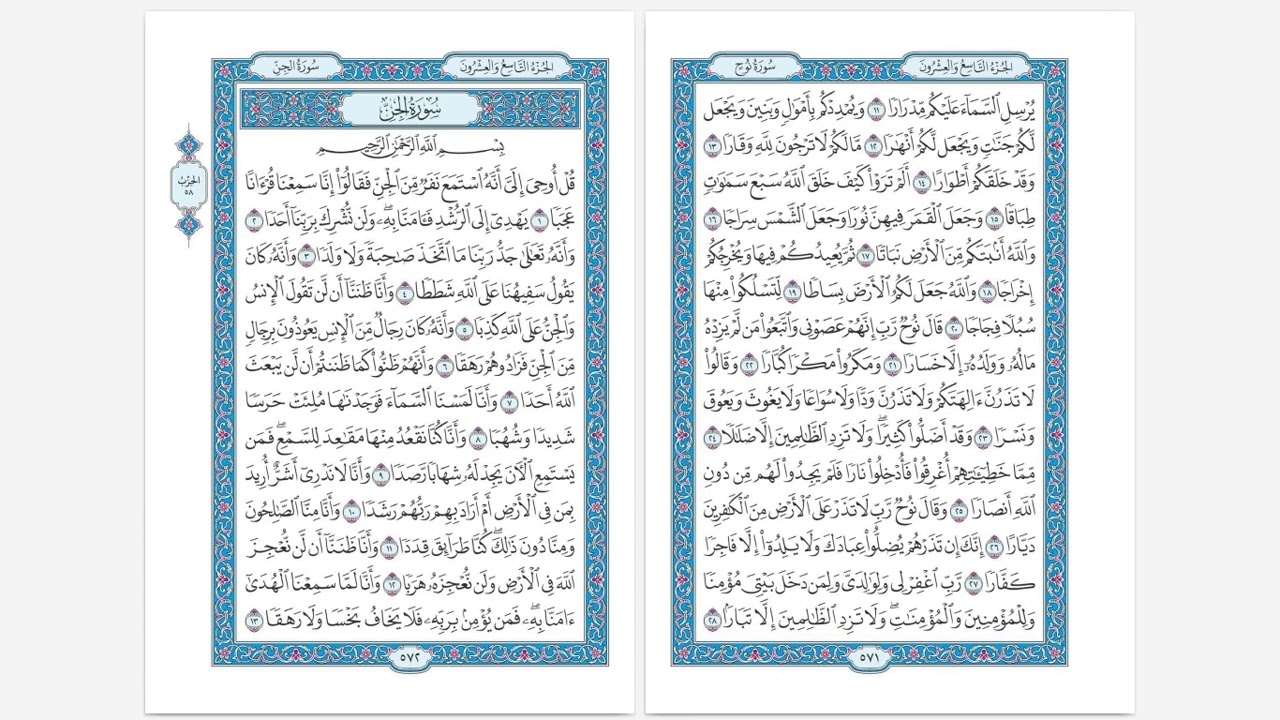 الجزء التاسع والعشرون
سورة نوح
يُرْسِلِ ٱلسَّمَآءَ عَلَيْكُم مِّدْرَارًا ١١ وَيُمْدِدْكُم بِأَمْوَٰلٍ وَبَنِينَ وَيَجْعَل
لَّكُمْ جَنَّٰتٍ وَيَجْعَل لَّكُمْ أَنْهَٰرًا ١٢ مَّا لَكُمْ لَا تَرْجُونَ لِلَّهِ وَقَارًا ١٣
وَقَدْ خَلَقَكُمْ أَطْوَارًا ١٤ أَلَمْ تَرَوْا۟ كَيْفَ خَلَقَ ٱللَّهُ سَبْعَ سَمَٰوَٰتٍ
طِبَاقًا ١٥ وَجَعَلَ ٱلْقَمَرَ فِيهِنَّ نُورًا وَجَعَلَ ٱلشَّمْسَ سِرَاجًا ١٦
وَٱللَّهُ أَنۢبَتَكُم مِّنَ ٱلْأَرْضِ نَبَاتًا ١٧ ثُمَّ يُعِيدُكُمْ فِيهَا وَيُخْرِجُكُمْ
إِخْرَاجًا ١٨ وَٱللَّهُ جَعَلَ لَكُمُ ٱلْأَرْضَ بِسَاطًا ١٩ لِّتَسْلُكُوا۟ مِنْهَا
سُبُلًا فِجَاجًا ٢٠ قَالَ نُوحٌ رَّبِّ إِنَّهُمْ عَصَوْنِى وَٱتَّبَعُوا۟ مَن لَّمْ يَزِدْهُ
مَالُهُۥ وَوَلَدُهُۥٓ إِلَّا خَسَارًا ٢١ وَمَكَرُوا۟ مَكْرًا كُبَّارًا ٢٢ وَقَالُوا۟
لَا تَذَرُنَّ ءَالِهَتَكُمْ وَلَا تَذَرُنَّ وَدًّا وَلَا سُوَاعًا وَلَا يَغُوثَ وَيَعُوقَ
وَنَسْرًا ٢٣ وَقَدْ أَضَلُّوا۟ كَثِيرًا ۖ وَلَا تَزِدِ ٱلظَّٰلِمِينَ إِلَّا ضَلَٰلًا ٢٤
مِّمَّا خَطِيٓـَٰٔتِهِمْ أُغْرِقُوا۟ فَأُدْخِلُوا۟ نَارًا فَلَمْ يَجِدُوا۟ لَهُم مِّن دُونِ
ٱللَّهِ أَنصَارًا ٢٥ وَقَالَ نُوحٌ رَّبِّ لَا تَذَرْ عَلَى ٱلْأَرْضِ مِنَ ٱلْكَٰفِرِينَ
دَيَّارًا ٢٦ إِنَّكَ إِن تَذَرْهُمْ يُضِلُّوا۟ عِبَادَكَ وَلَا يَلِدُوٓا۟ إِلَّا فَاجِرًا
كَفَّارًا ٢٧ رَّبِّ ٱغْفِرْ لِى وَلِوَٰلِدَىَّ وَلِمَن دَخَلَ بَيْتِىَ مُؤْمِنًا
وَلِلْمُؤْمِنِينَ وَٱلْمُؤْمِنَٰتِ ۖ وَلَا تَزِدِ ٱلظَّٰلِمِينَ إِلَّا تَبَارًۢا ٢٨
٥٧١
الجزء التاسع والعشرون
سورة الجن
سورة الجن
بِسْمِ ٱللَّهِ ٱلرَّحْمَٰنِ ٱلرَّحِيمِ
قُلْ أُوحِىَ إِلَىَّ أَنَّهُ ٱسْتَمَعَ نَفَرٌ مِّنَ ٱلْجِنِّ فَقَالُوٓا۟ إِنَّا سَمِعْنَا قُرْءَانًا
عَجَبًا ١ يَهْدِىٓ إِلَى ٱلرُّشْدِ فَـَٔامَنَّا بِهِۦ ۖ وَلَن نُّشْرِكَ بِرَبِّنَآ أَحَدًا ٢
وَأَنَّهُۥ تَعَٰلَىٰ جَدُّ رَبِّنَا مَا ٱتَّخَذَ صَٰحِبَةً وَلَا وَلَدًا ٣ وَأَنَّهُۥ كَانَ
يَقُولُ سَفِيهُنَا عَلَى ٱللَّهِ شَطَطًا ٤ وَأَنَّا ظَنَنَّآ أَن لَّن تَقُولَ ٱلْإِنسُ
وَٱلْجِنُّ عَلَى ٱللَّهِ كَذِبًا ٥ وَأَنَّهُۥ كَانَ رِجَالٌ مِّنَ ٱلْإِنسِ يَعُوذُونَ بِرِجَالٍ
مِّنَ ٱلْجِنِّ فَزَادُوهُمْ رَهَقًا ٦ وَأَنَّهُمْ ظَنُّوا۟ كَمَا ظَنَنتُمْ أَن لَّن يَبْعَثَ
ٱللَّهُ أَحَدًا ٧ وَأَنَّا لَمَسْنَا ٱلسَّمَآءَ فَوَجَدْنَٰهَا مُلِئَتْ حَرَسًا
شَدِيدًا وَشُهُبًا ٨ وَأَنَّا كُنَّا نَقْعُدُ مِنْهَا مَقَٰعِدَ لِلسَّمْعِ ۖ فَمَن
يَسْتَمِعِ ٱلْـَٔانَ يَجِدْ لَهُۥ شِهَابًا رَّصَدًا ٩ وَأَنَّا لَا نَدْرِىٓ أَشَرٌّ أُرِيدَ
بِمَن فِى ٱلْأَرْضِ أَمْ أَرَادَ بِهِمْ رَبُّهُمْ رَشَدًا ١٠ وَأَنَّا مِنَّا ٱلصَّٰلِحُونَ
وَمِنَّا دُونَ ذَٰلِكَ ۖ كُنَّا طَرَآئِقَ قِدَدًا ١١ وَأَنَّا ظَنَنَّآ أَن لَّن نُّعْجِزَ
ٱللَّهَ فِى ٱلْأَرْضِ وَلَن نُّعْجِزَهُۥ هَرَبًا ١٢ وَأَنَّا لَمَّا سَمِعْنَا ٱلْهُدَىٰٓ
ءَامَنَّا بِهِۦ ۖ فَمَن يُؤْمِنۢ بِرَبِّهِۦ فَلَا يَخَافُ بَخْسًا وَلَا رَهَقًا ١٣
٥٧٢
الحزب
٥٨